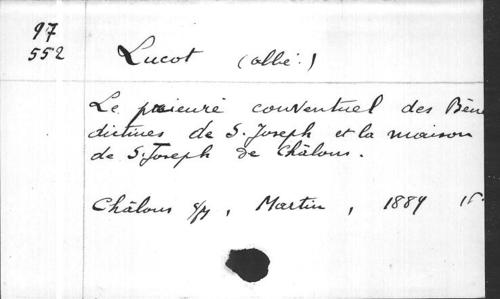 97
552
Lucot (abbé.)
Le prieuré conventuel des Béné
dictines de S. Joseph et la maison
de S. Joseph de Châlons.
Châlons s/M, Martin, 1889